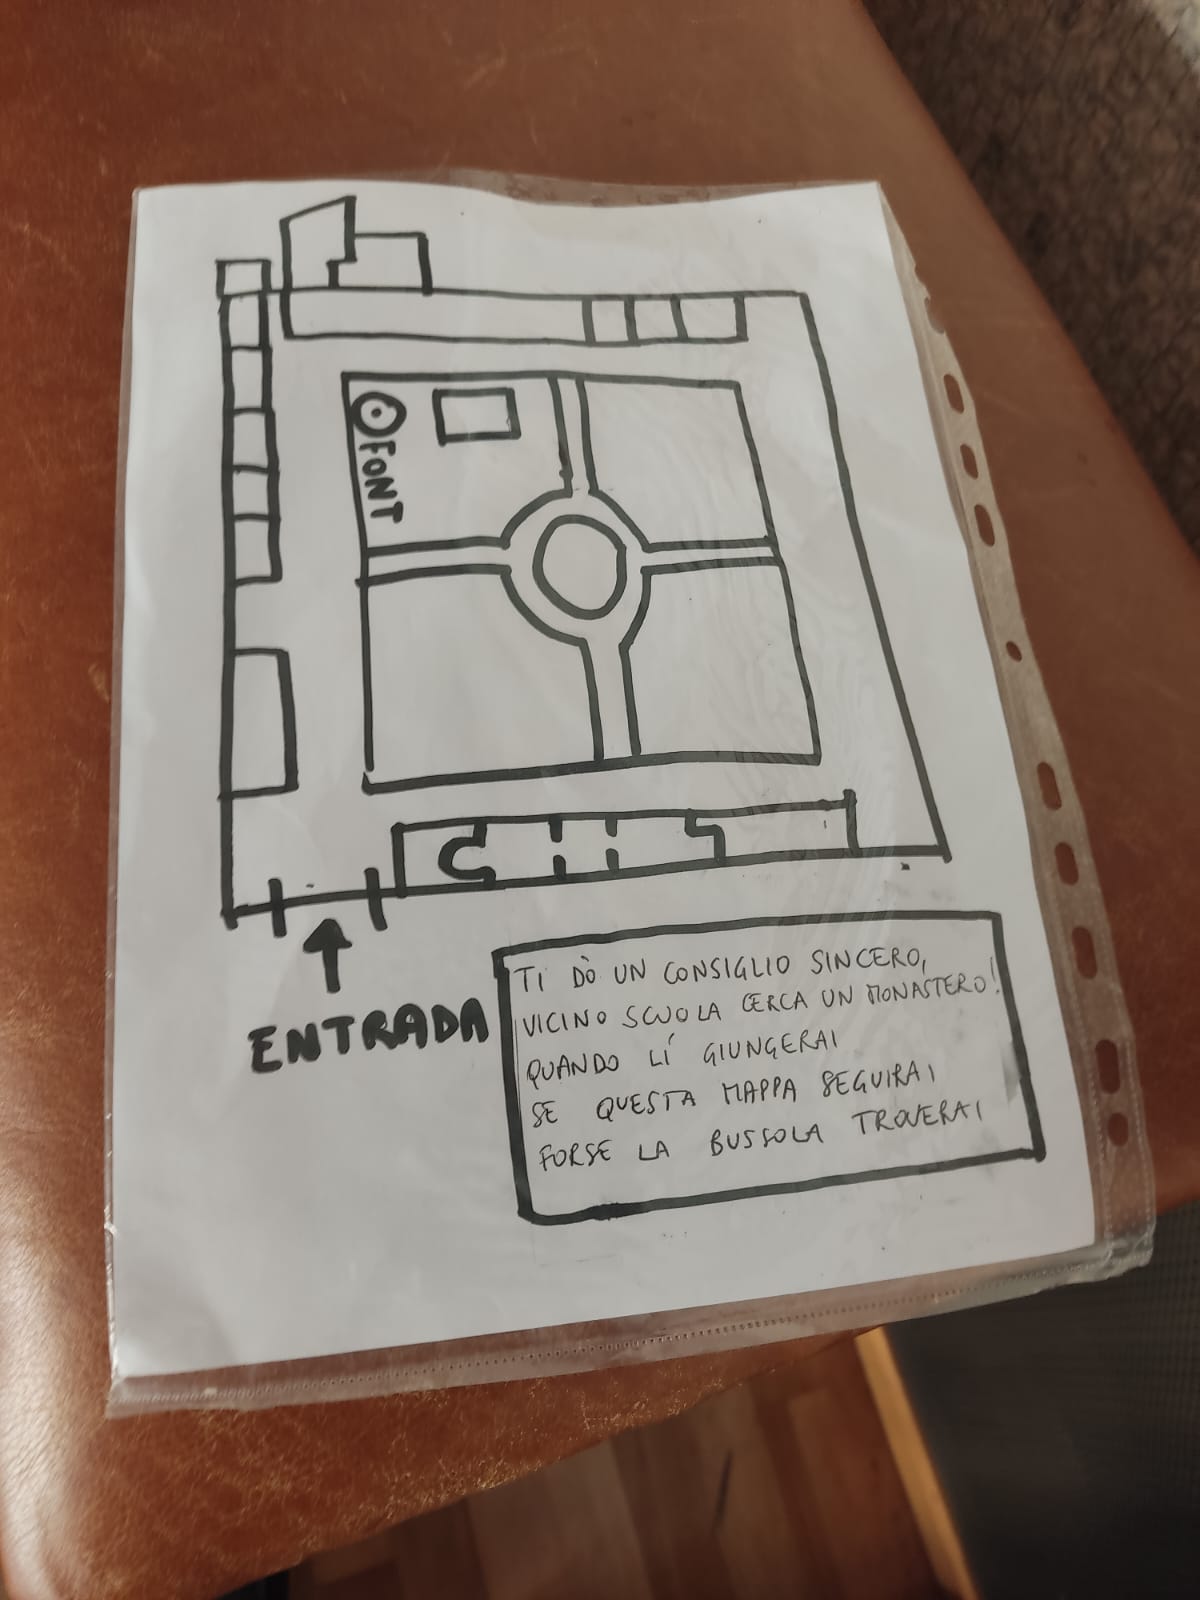 FONT
ENTRADA
TI DÒ UN CONSIGLIO SINCERO,
VICINO SCUOLA CERCA UN MONASTERO!
QUANDO LÍ GIUNGERAI
SE QUESTA MAPPA SEGUIRAI
FORSE LA BUSSOLA TROVERAI